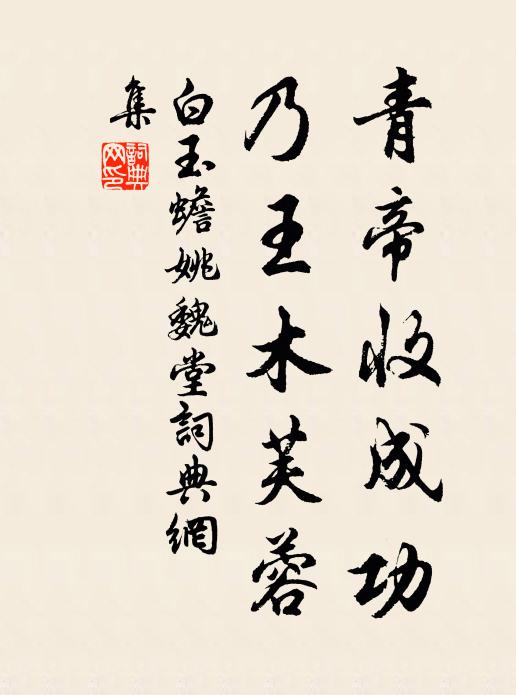 青帝收成功
乃王木芙蓉
白玉蟾姚魏堂詞典網
集
詞典網印